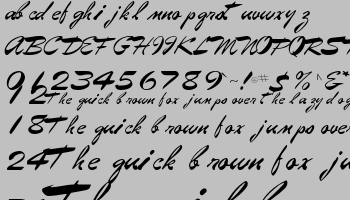 ab cd ef ghi j kl mno pqrst uvwxy z
ABCDEFGHIJKLMNOPQRST
9123456789 ~ ! # $ % ^ & *
12 The quick brown fox jumps over the lazy dog
18 The quick brown fox jumps over
24 The quick brown fox ju
The quick b